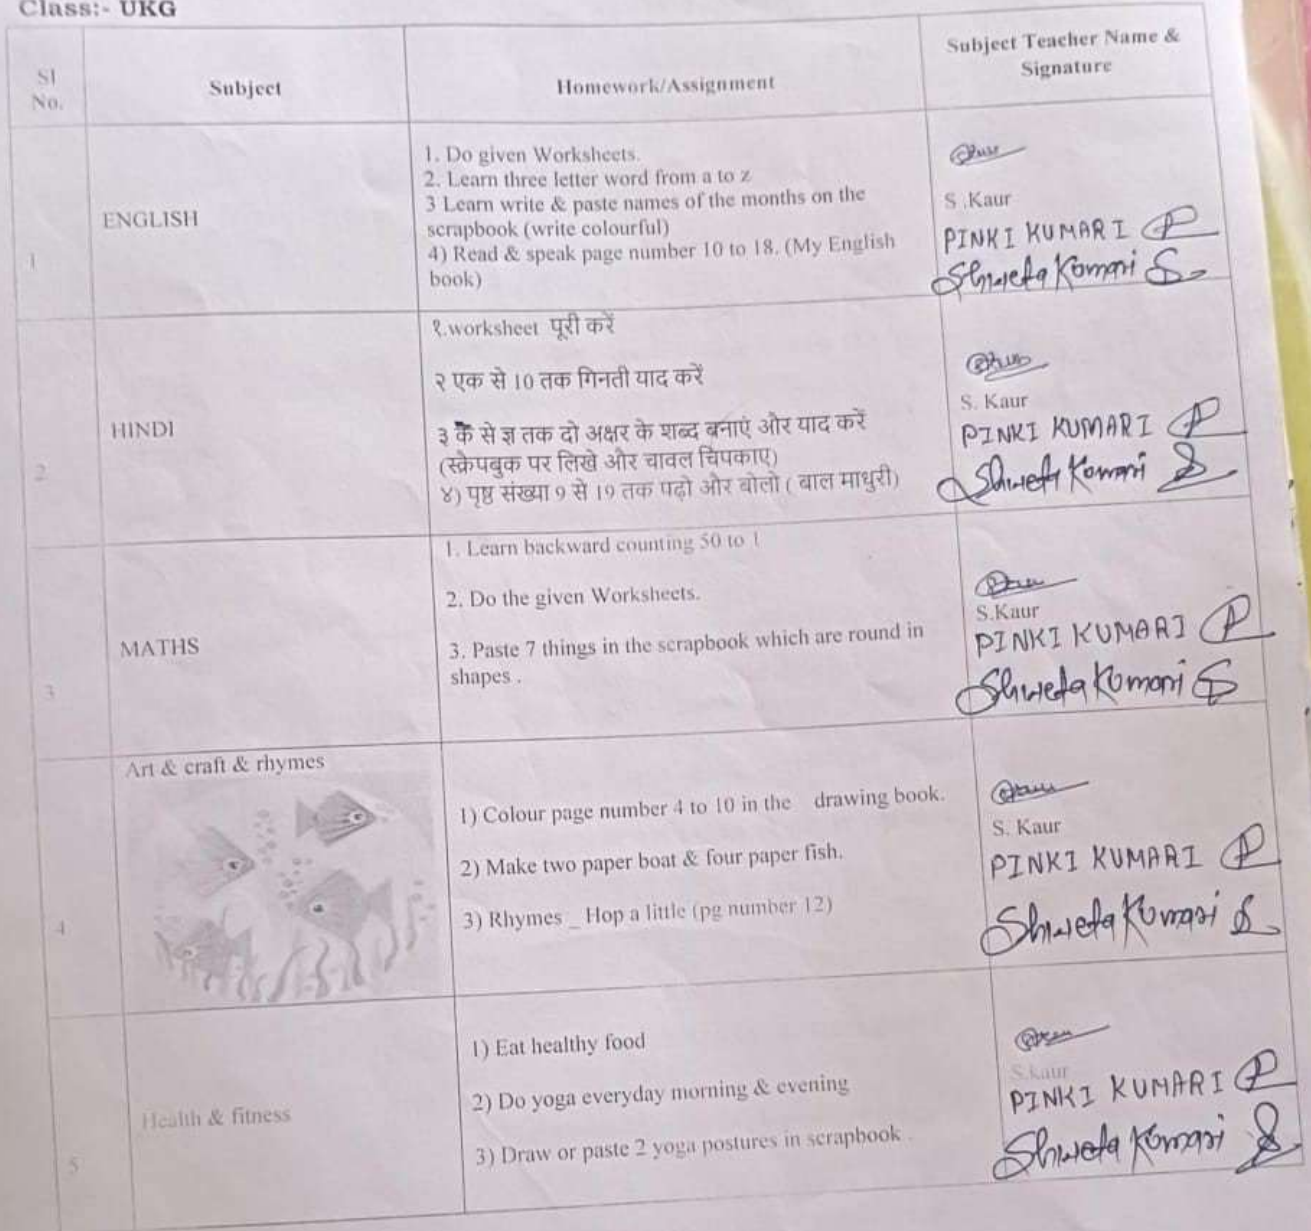 Class:- UKG
Sl No.
Subject
Homework/Assignment
Subject Teacher Name &
Signature
1
ENGLISH
1. Do given Worksheets.
2. Learn three letter word from a to z
3 Learn write & paste names of the months on the
scrapbook (write colourful)
4) Read & speak page number 10 to 18. (My English
book)
S .Kaur
PINKI KUMARI
Shweta Kumari
2
HINDI
१.worksheet पूरी करें
२ एक से 10 तक गिनती याद करें
३ क से ज्ञ तक दो अक्षर के शब्द बनाएं और याद करें
(स्क्रेपबुक पर लिखे और चावल चिपकाए)
४) पृष्ठ संख्या 9 से 19 तक पढ़ो और बोलो ( बाल माधुरी)
S. Kaur
PINKI KUMARI
Shweta Kumari
3
MATHS
1. Learn backward counting 50 to 1
2. Do the given Worksheets.
3. Paste 7 things in the scrapbook which are round in
shapes .
S.Kaur
PINKI KUMARI
Shweta Kumari
4
Art & craft & rhymes
1) Colour page number 4 to 10 in the drawing book.
2) Make two paper boat & four paper fish.
3) Rhymes _ Hop a little (pg number 12)
S. Kaur
PINKI KUMARI
Shweta Kumari
5
Health & fitness
1) Eat healthy food
2) Do yoga everyday morning & evening
3) Draw or paste 2 yoga postures in scrapbook .
S.kaur
PINKI KUMARI
Shweta Kumari